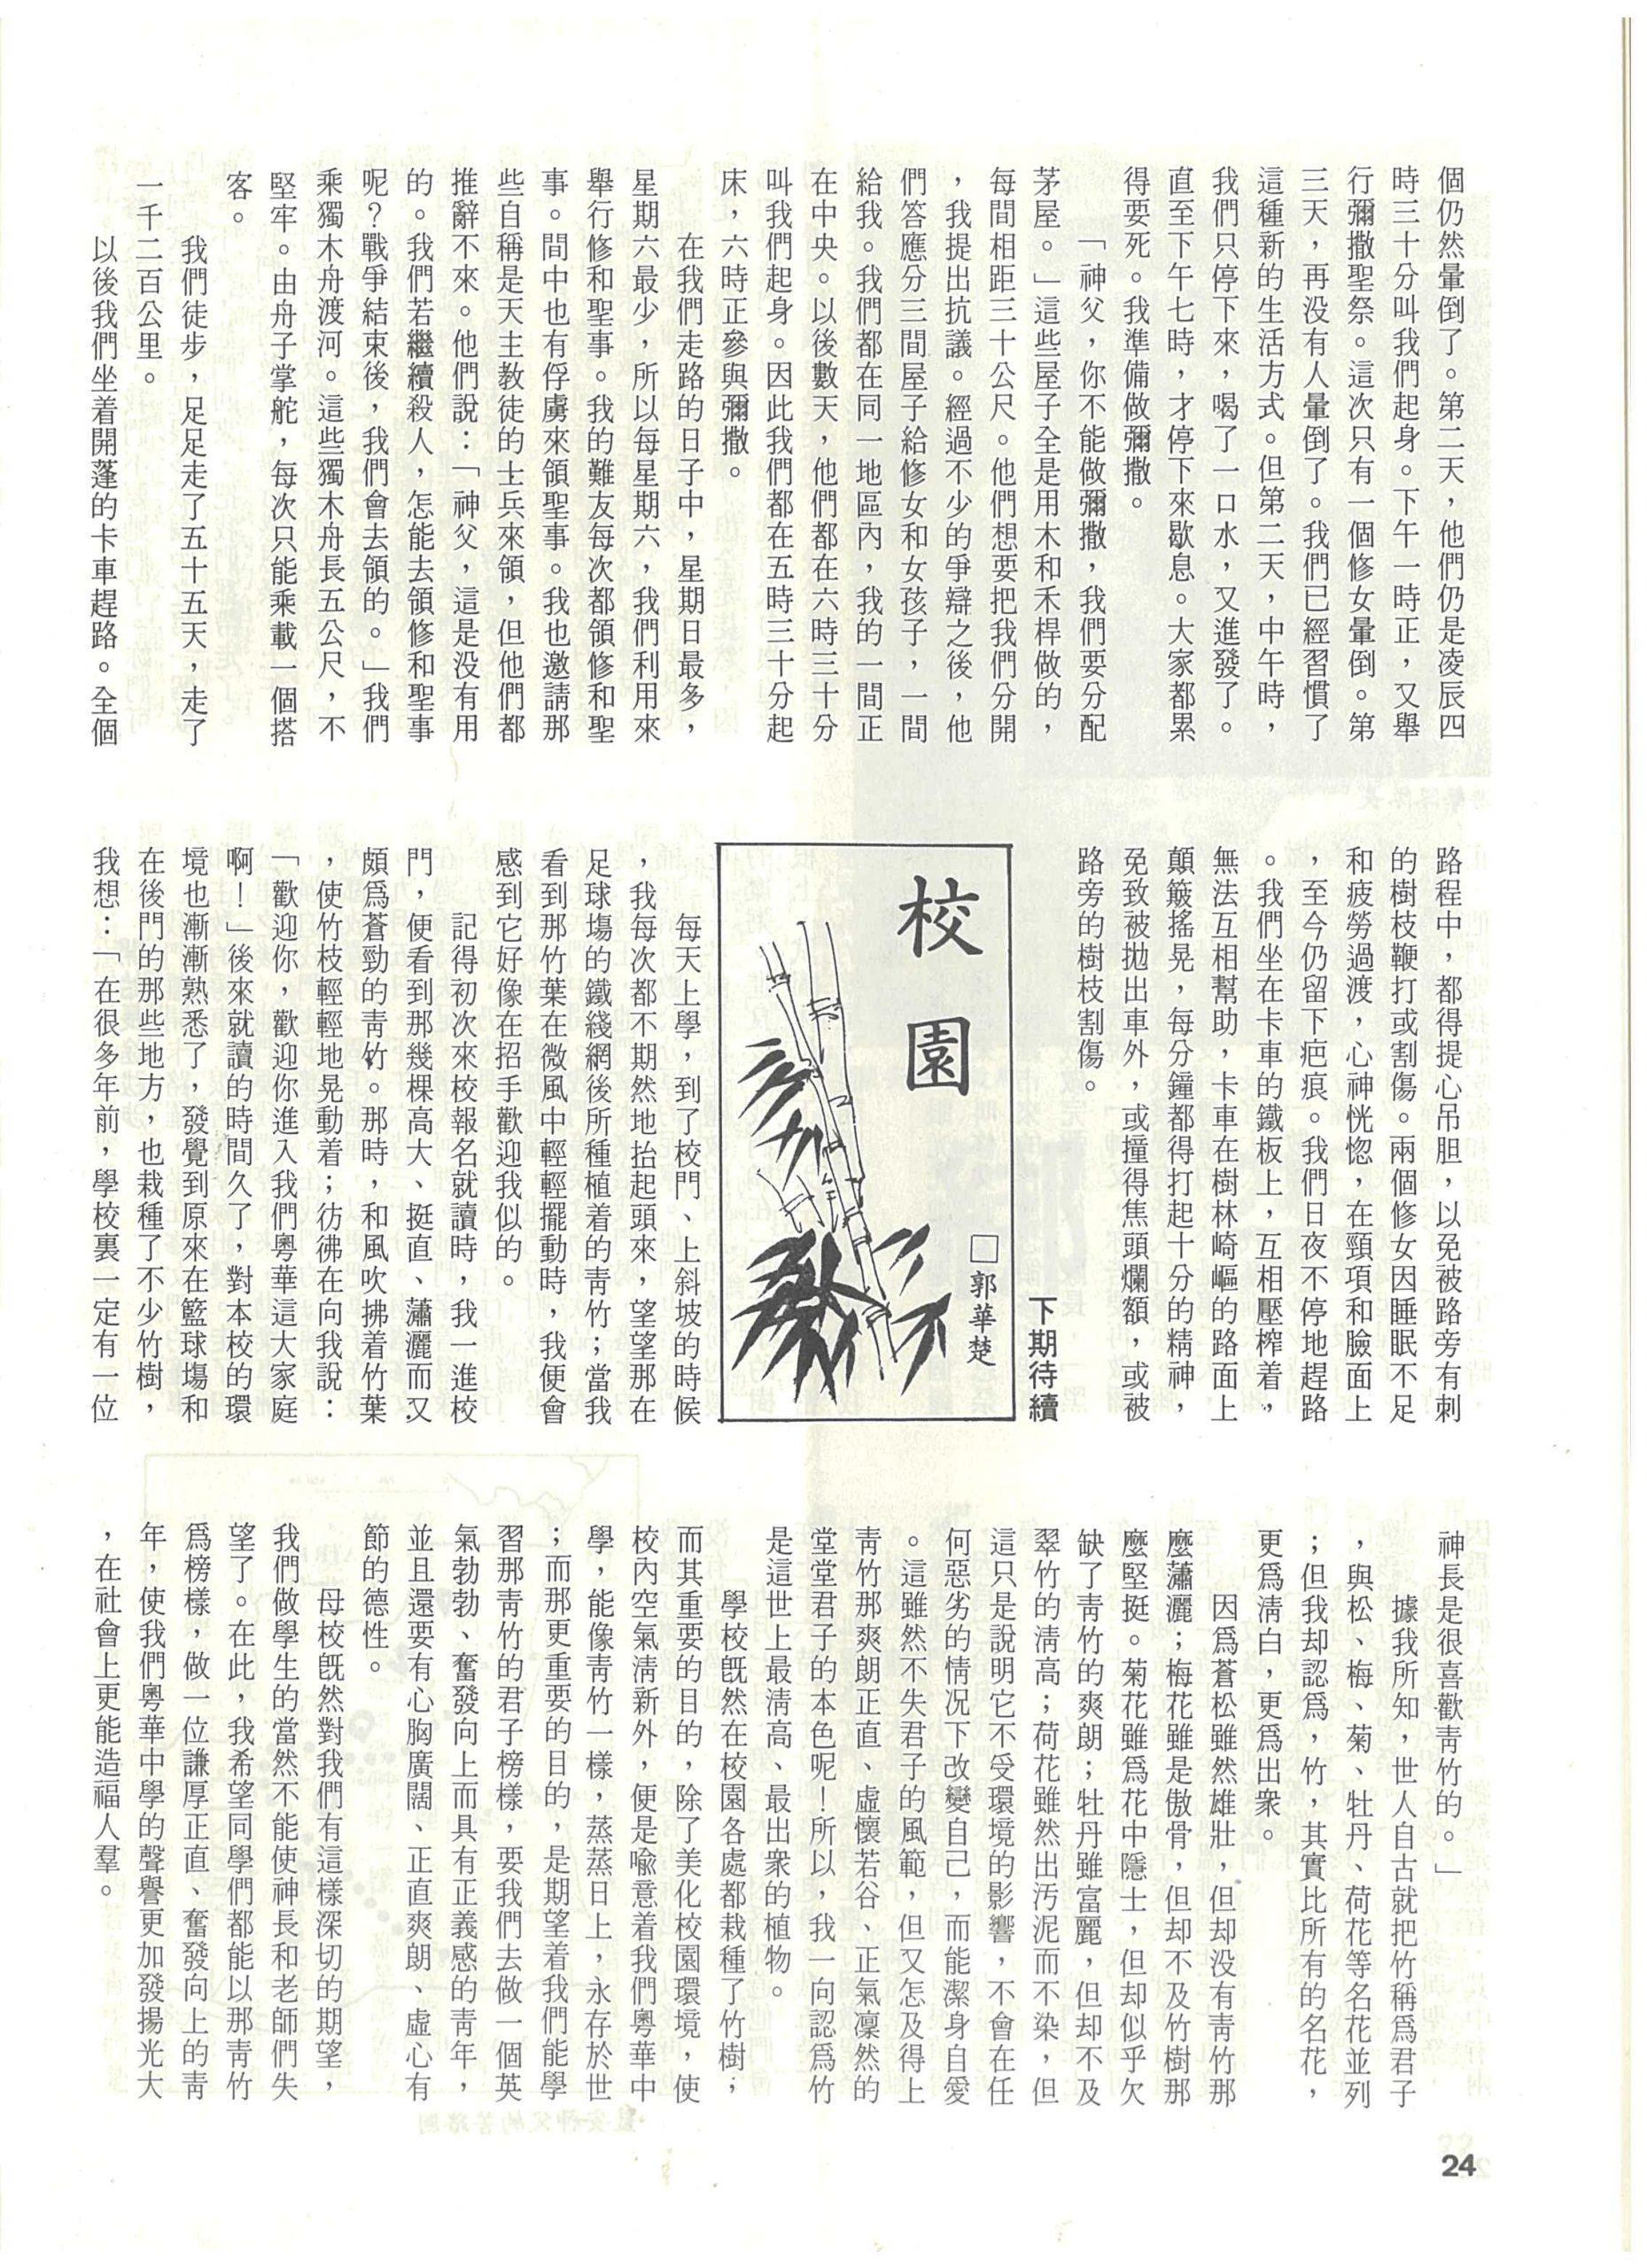 個仍然暈倒了。第二天，他們仍是凌辰四
時三十分叫我們起身。下午一時正，又舉
行彌撒聖祭。這次只有一個修女暈倒。第
三天，再没有人暈倒了。我們已經習慣了
這種新的生活方式。但第二天，中午時，
我們只停下來，喝了一口水，又進發了。
直至下午七時，才停下來歇息。大家都累
得要死。我準備做彌撒。
「神父，你不能做彌撒，我們要分配
茅屋。」這些屋子全是用木和禾桿做的，
每間相距三十公尺。他們想要把我們分開
，我提出抗議。經過不少的爭辯之後，他
們答應分三間屋子給修女和女孩子，一間
給我。我們都在同一地區內，我的一間正
在中央。以後數天，他們都在六時三十分
叫我們起身。因此我們都在五時三十分起
床，六時正參與彌撒。
在我們走路的日子中，星期日最多，
星期六最少，所以每星期六，我們利用來
舉行修和聖事。我的難友每次都領修和聖
事。間中也有俘虜來領聖事。我也邀請那
些自稱是天主教徒的士兵來領，但他們都
推辭不來。他們說：「神父，這是没有用
的。我們若繼續殺人，怎能去領修和聖事
呢？戰爭結束後，我們會去領的。」我們
乘獨木舟渡河。這些獨木舟長五公尺，不
堅牢。由舟子掌舵，每次只能乘載一個搭
客。
我們徒步，足足走了五十五天，走了
一千二百公里。
以後我們坐着開蓬的卡車趕路。全個
路程中，都得提心吊胆，以免被路旁有刺
的樹枝鞭打或割傷。兩個修女因睡眠不足
和疲勞過渡，心神恍惚，在頸項和臉面上
，至今仍留下疤痕。我們日夜不停地趕路
。我們坐在卡車的鐵板上，互相壓榨着，
無法互相幫助，卡車在樹林崎嶇的路面上
顛簸搖晃，每分鐘都得打起十分的精神，
免致被拋出車外，或撞得焦頭爛額，或被
路旁的樹枝割傷。
下期待續
校園
□郭華楚
每天上學，到了校門、上斜坡的時候
，我每次都不期然地抬起頭來，望望那在
足球塲的鐵綫網後所種植着的靑竹；當我
看到那竹葉在微風中輕輕擺動時，我便會
感到它好像在招手歡迎我似的。
記得初次來校報名就讀時，我一進校
門，便看到那幾棵高大、挺直、瀟灑而又
頗爲蒼勁的靑竹。那時，和風吹拂着竹葉
，使竹枝輕輕地晃動着；彷彿在向我說：
「歡迎你，歡迎你進入我們粵華這大家庭
啊！」後來就讀的時間久了，對本校的環
境也漸漸熟悉了，發覺到原來在籃球塲和
在後門的那些地方，也栽種了不少竹樹，
我想：「在很多年前，學校裏一定有一位
神長是很喜歡靑竹的。」
據我所知，世人自古就把竹稱爲君子
，與松、梅、菊、牡丹、荷花等名花並列
；但我却認爲，竹，其實比所有的名花，
更爲淸白，更爲出衆。
因爲蒼松雖然雄壯，但却没有靑竹那
麼瀟灑；梅花雖是傲骨，但却不及竹樹那
麼堅挺。菊花雖爲花中隱士，但却似乎欠
缺了靑竹的爽朗；牡丹雖富麗，但却不及
翠竹的淸高；荷花雖然出汚泥而不染，但
這只是說明它不受環境的影響，不會在任
何惡劣的情况下改變自己，而能潔身自愛
。這雖然不失君子的風範，但又怎及得上
靑竹那爽朗正直、虛懷若谷、正氣凜然的
堂堂君子的本色呢！所以，我一向認爲竹
是這世上最淸高、最出衆的植物。
學校旣然在校園各處都栽種了竹樹；
而其重要的目的，除了美化校園環境，使
校內空氣淸新外，便是喻意着我們粵華中
學，能像靑竹一樣，蒸蒸日上，永存於世
；而那更重要的目的，是期望着我們能學
習那靑竹的君子榜樣，要我們去做一個英
氣勃勃、奮發向上而具有正義感的靑年，
並且還要有心胸廣闊、正直爽朗、虛心有
節的德性。
母校旣然對我們有這樣深切的期望，
我們做學生的當然不能使神長和老師們失
望了。在此，我希望同學們都能以那靑竹
爲榜樣，做一位謙厚正直、奮發向上的靑
年，使我們粵華中學的聲譽更加發揚光大
，在社會上更能造福人羣。
24